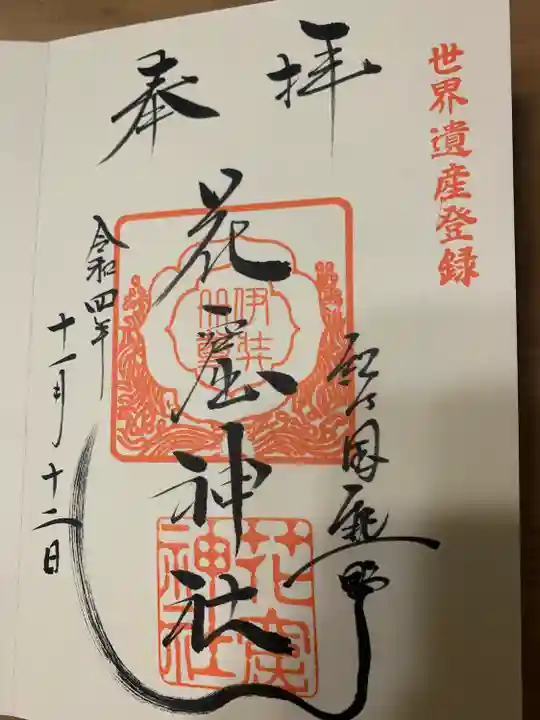 世界遺産登録
奉拝
紀乃国熊野
花窟神社
令和四年
十一月十二日
伊弉冊尊
花窟神社